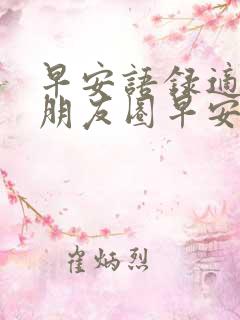 早安語錄適
朋友圈早安
崔炳烈